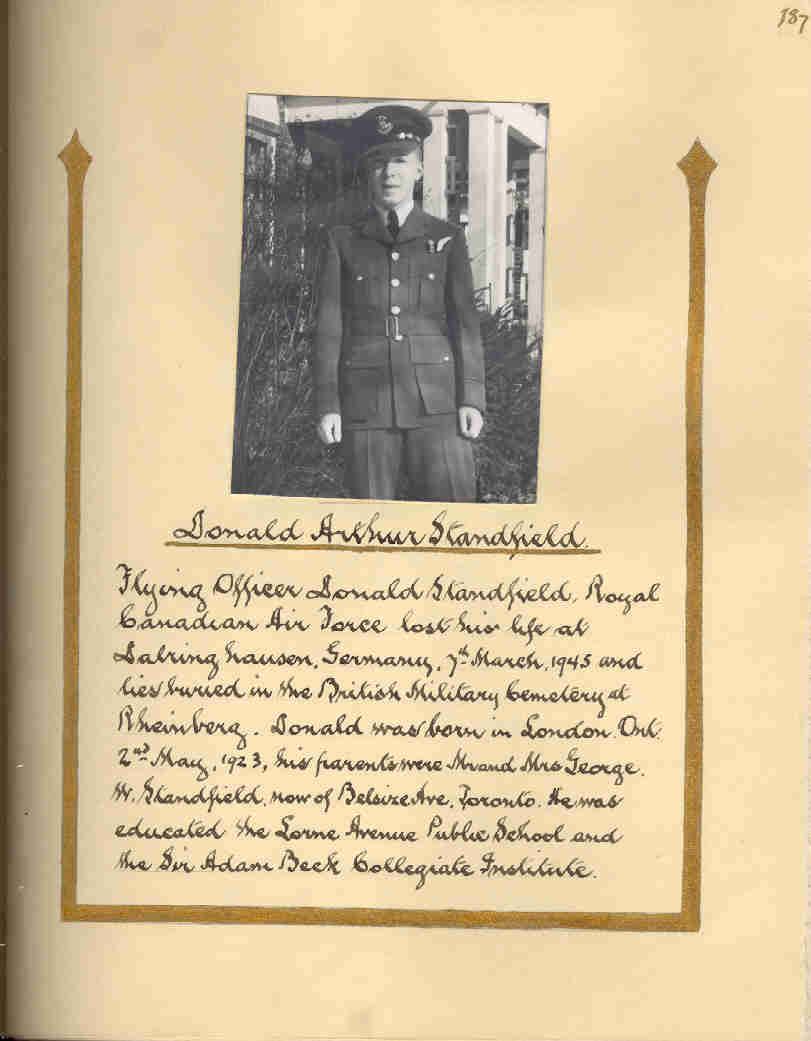 187
Donald Arthur Standfield.
Flying Officer Donald Standfield, Royal
Canadian Air Force lost his life at
Dalringhausen, Germany, 7th March, 1945 and
lies buried in the British Military Cemetery at
Rheinberg. Donald was born in London Ont.
2nd May, 1923, his parents were Mr and Mrs George.
W. Standfield, now of Belsize Ave, Toronto. He was
educated the Lorne Avenue Public School and
the Sir Adam Beck Collegiate Institute.